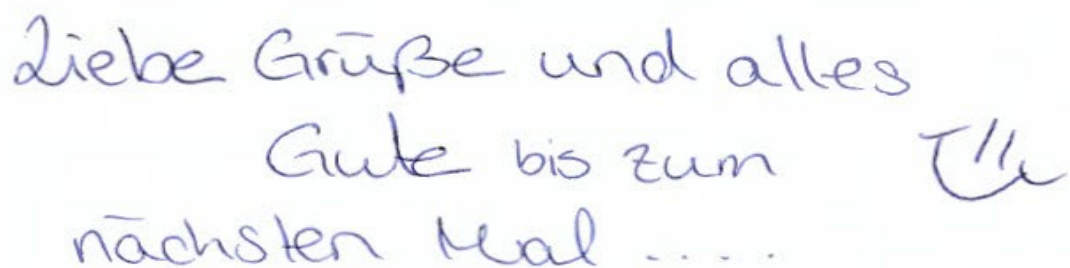 Liebe Grüße und alles
Gute bis zum
nächsten Mal .....